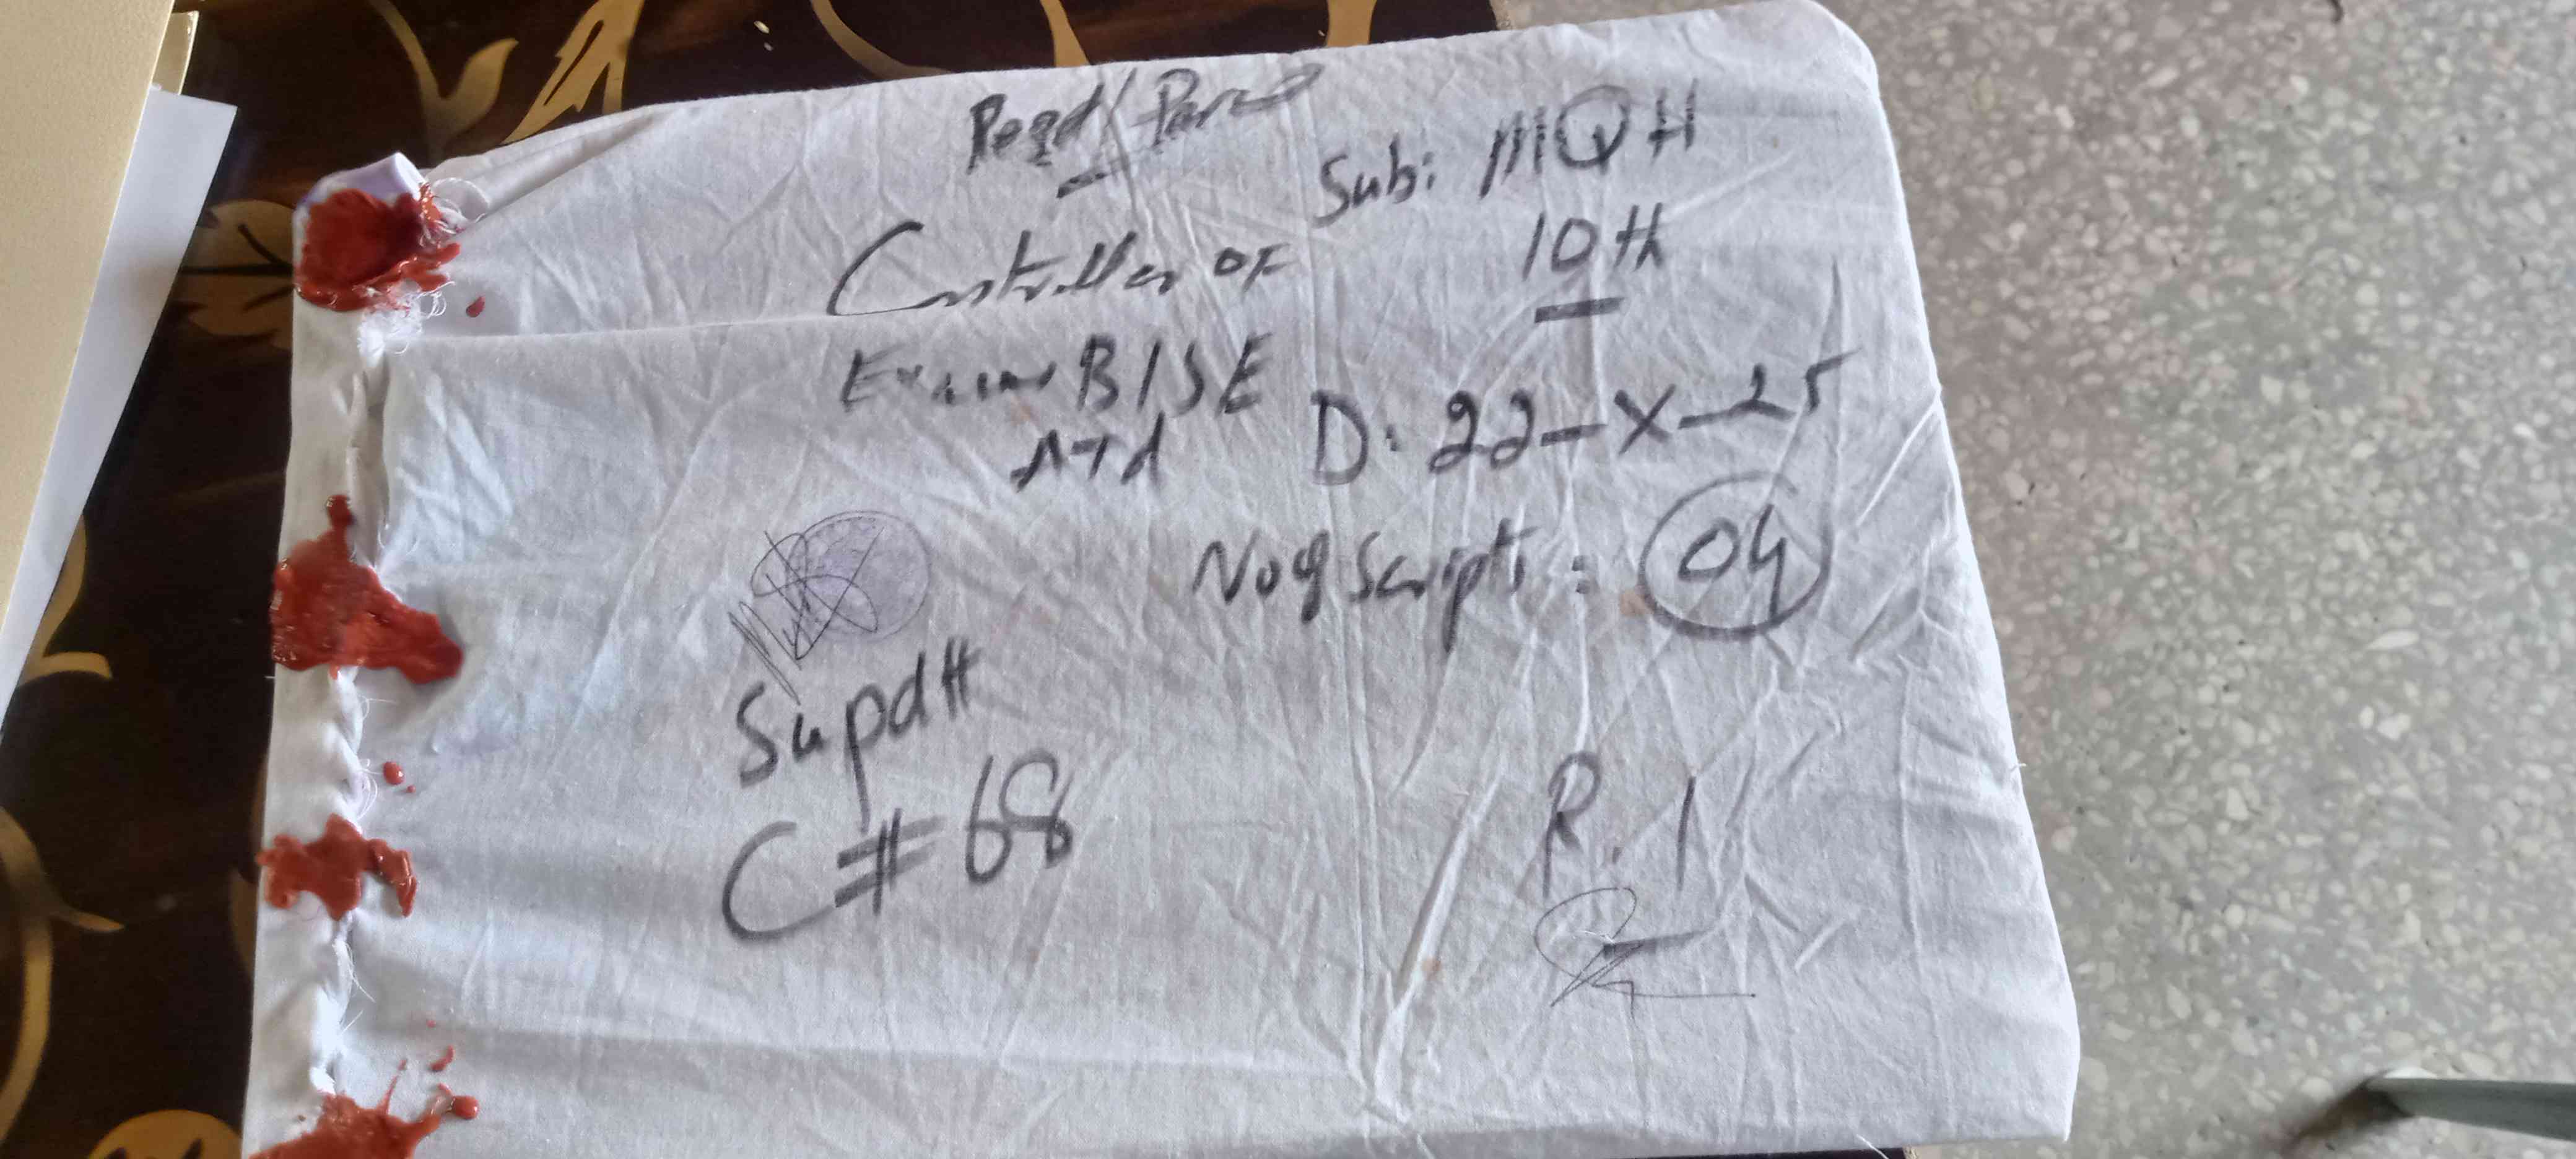 Regd/Parcel
Controller OF
Exam BISE
ATd
Sub: MQH
10th
D: 22-X-25
No of Scripts: 04
Supdtt
C# 68
R.I